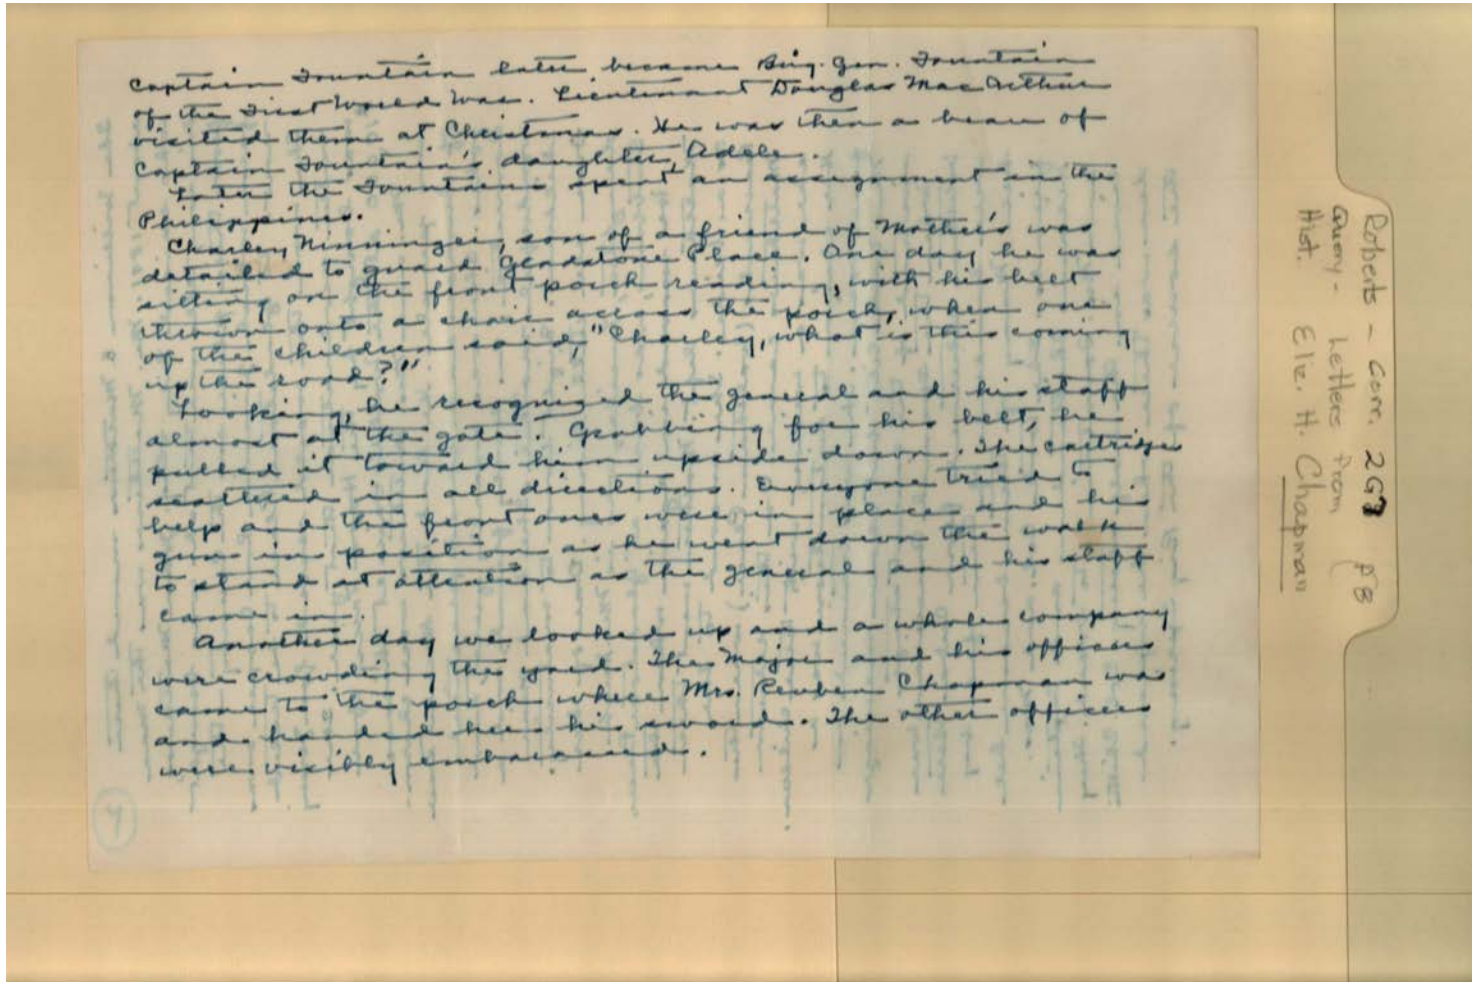 Captain Fountain later became Brig. Gen. Fountain
of the First World War. Lieutenant Douglas MacArthur
visited them at Christmas. He was then a beau of
Captain Fountain's daughter, Adele.
Later the Fountains spent an assignment in the
Philippines.
Charley Ninninger, son of a friend of Mother's was
detailed to guard Gladstone Place. One day he was
sitting on the front porch reading, with his belt
thrown onto a chair across the porch, when one
of the children said, "Charley, what is this coming
up the road?"
Looking, he recognized the general and his staff
almost at the gate. Grabbing for his belt, he
pulled it toward him upside down. The cartridges
scattered in all directions. Everyone tried to
help and the front ones were in place and his
gun in position as he went down the walk
to stand at attention as the general and his staff
came in.
Another day we looked up and a whole company
were crowding the yard. The Major and his officers
came to the porch where Mrs. Reuben Chapman was
and handed her his sword. The other officers
were visibly embarassed.
Roberts - Corr. 267 p 8
Query - Letters from
Hist. Eliz. H. Chapman